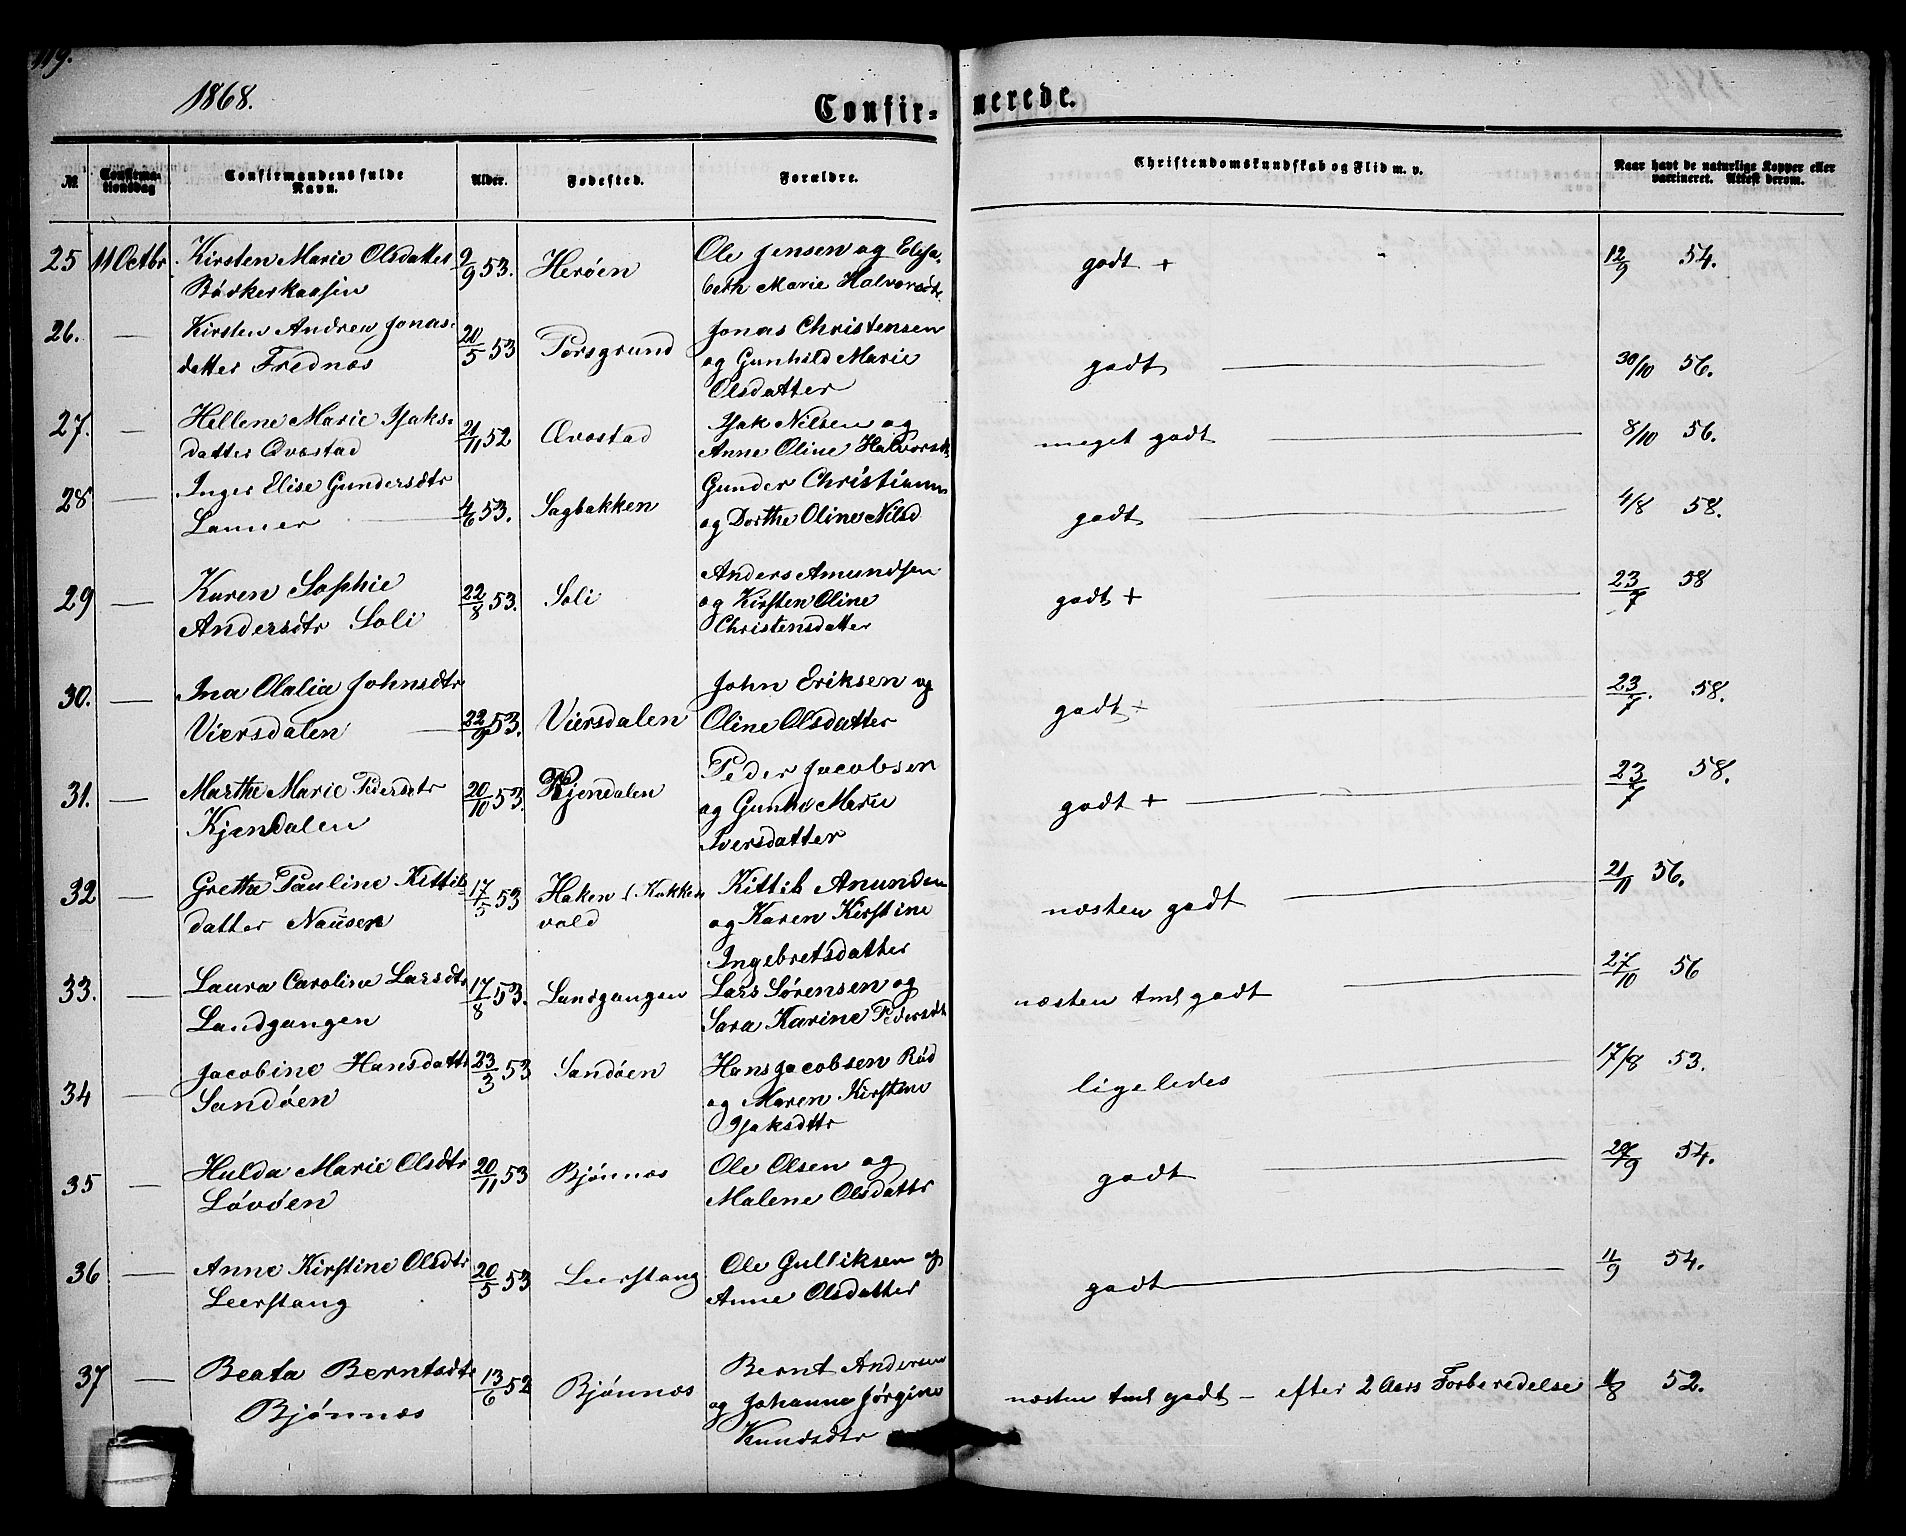 119.
1868.
Confir- merede.
№ Confirma- tionsdag Confirmandens fulde Navn. Alder. Fødested. Forældre. Christendomskundskab og Flid m. v. Naar havt de naturlige Kopper eller vaccineret. Attest derom.
25 11 Octbr Kirsten Marie Olsdatter 9/9 53. Herøen Ole Jensen og Elisa- godt + 12/9 54.
beth Marie Halvorsdtr
26. — Kirsten Andrea Jonas- 20/5 53 Porsgrund Jonas Christensen godt — 30/10 56.
datter Frednes og Gunhild Marie
Olsdatter
27. — Hellene Marie Isaks- 21/11 52 Qvestad Isak Nilsen og meget godt — 8/10 56.
datter Qvestad Anne Oline Halvorsdt
28 — Inger Elise Gundersdtr 4/6 53. Sagbakken Gunder Christians godt — 4/8 58.
Lanner — og Dorthe Oline Nilsd
29 — Karen Sophie 22/8 53. Soli Anders Amundsen godt + — 23/7 58
Andersdtr Soli og Kirsten Oline
Christensdatter
30. — Ina Olalia Johnsdtr 22/9 53. Viersdalen John Eriksen og godt + — 23/7. 58.
Viersdalen — Oline Olsdatter
31. — Marthe Marie Pedersdtr 20/10 53. Kjendalen Peder Jacobsen godt + — 23/7 58.
Kjendalen og Gunhe Marie
Iversdatter
32 — Grethe Pauline Kittils- 17/5 53 Haken i Kokken Kittil Anundsen næsten godt — 21/11 56.
datter Nausen vold og Karen Kirstine
Ingebretsdatter
33. — Laura Caroline Larsdtr 17/8 53. Landgangen Lars Sørensen og næsten tml godt — 27/10 56
Landgangen Sara Karine Pedersdt
34 — Jacobine Hansdattr 23/3 53 Sandøen Hans Jacobsen Rød ligeledes — 17/8 53.
Sandøen og Maren Kirstine
Isaksdttr
35 — Hulda Marie Olsdtr 20/11 53 Bjønnes Ole Olsen og godt — 27/9 54.
Løvøen Malene Olsdattr
36 — Anne Kirstine Olsdtr 20/5 53 Leerstang Ole Gulliksen og godt — 11/9 54.
Leerstang Anne Olsdatter
37 — Beata Berntsdtr 13/6 52 Bjønnes Bernt Andersen næsten tml godt – efter 2 Aars Forberedelse 11/8 52.
Bjønnes og Johanne Jørgine
Knudsdtr